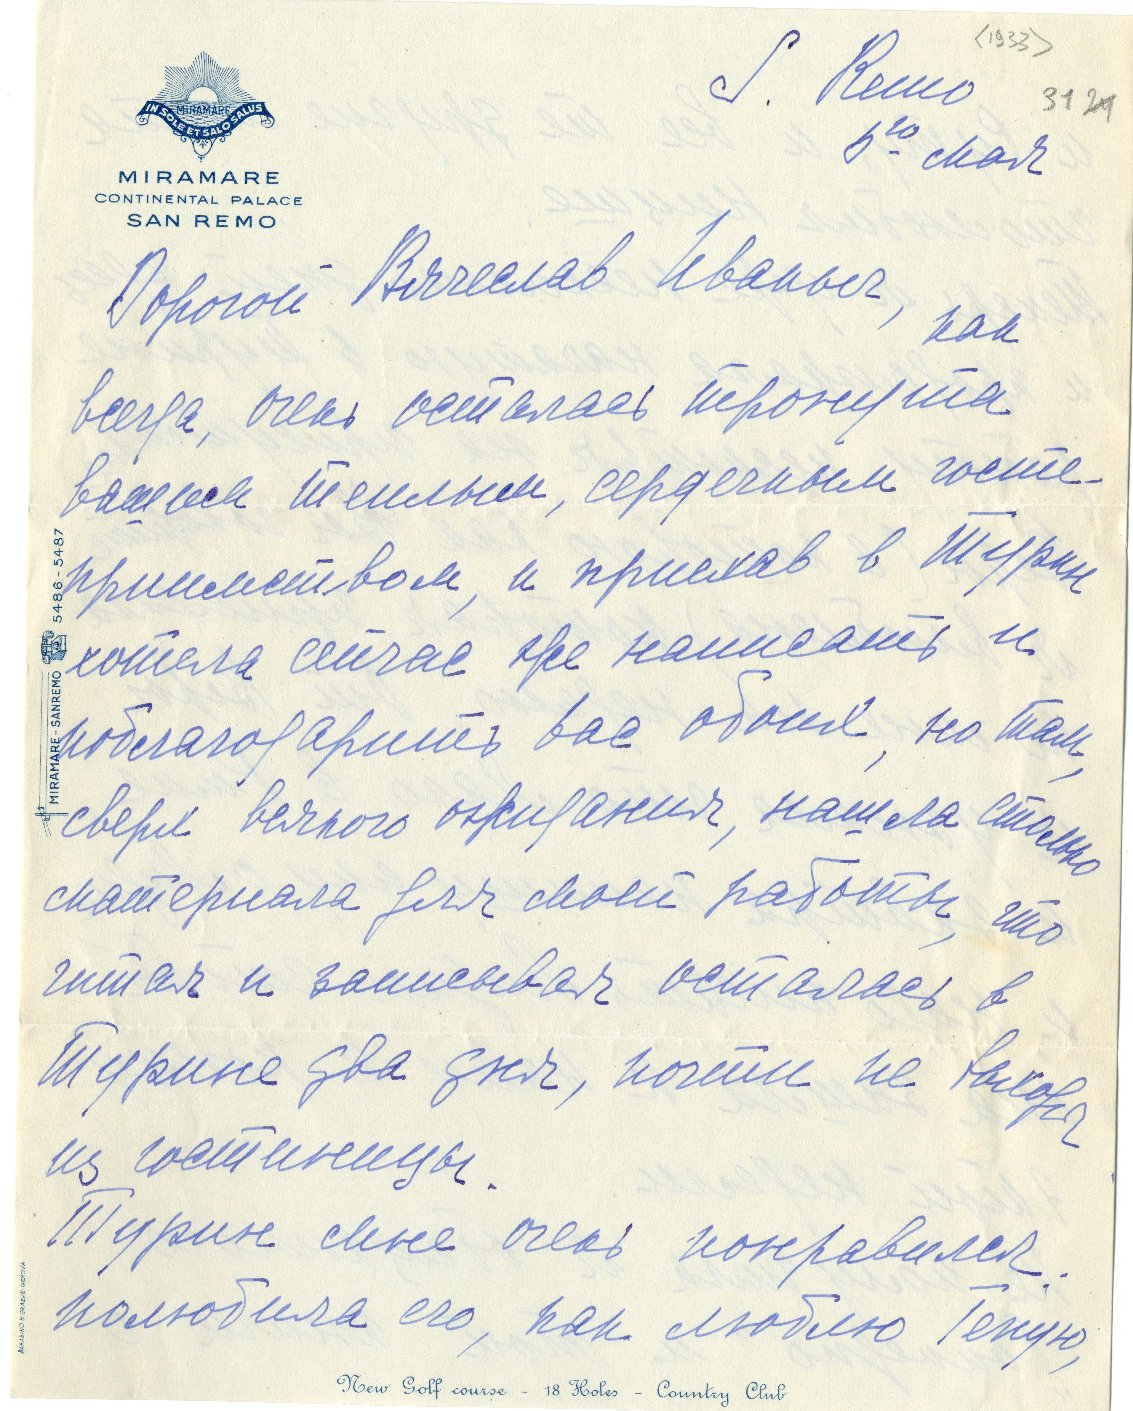 <1933>
S. Remo
31 21
5го мая
MIRAMARE
IN SOLE ET SALO SALUS
MIRAMARE
CONTINENTAL PALACE
SAN REMO
Дорогой Вячеслав Иваныч, как
всегда, очень осталась тронута
вашим теплым, сердечным госте-
приимством, и приехав в Турин
хотела сейчас же написать и
поблагодарить вас обоих, но там,
сверх всякого ожидания, нашла столько
материала для моей работы, что
читая и записывая осталась в
Турине два дня, почти не выходя
из гостиницы.
Турин мне очень понравился.
полюбила его, как люблю Геную,
MIRAMARE - SANREMO 5486 - 5487
New Golf course - 18 Holes - Country Club